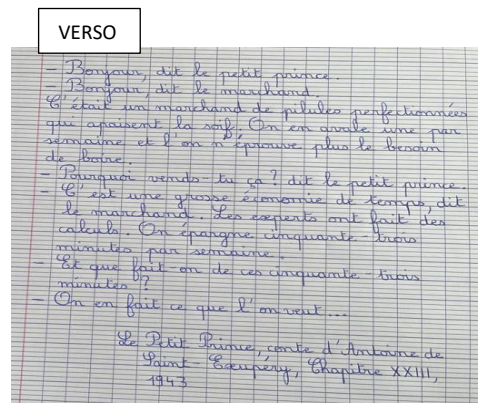 VERSO
- Bonjour, dit le petit prince.
- Bonjour, dit le marchand.
C'était un marchand de pilules perfectionnées
qui apaisent la soif. On en avale une par
semaine et l'on n'éprouve plus le besoin
de boire.
- Pourquoi vends-tu ça ? dit le petit prince.
- C'est une grosse économie de temps, dit
le marchand. Les experts ont fait des
calculs. On épargne cinquante-trois
minutes par semaine.
- Et que fait-on de ces cinquante-trois
minutes ?
- On en fait ce que l'on veut...
Le Petit Prince, conte d'Antoine de
Saint-Exupéry, Chapitre XXIII,
1943